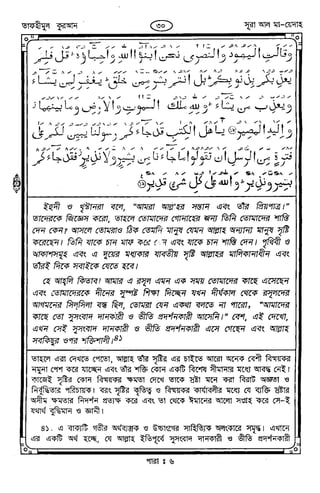 তাফহীমুল কুরআন
৩০
সূরা আল মা-য়েদাহ
وَقَالَتِ الْيَهُودُ وَالنَّصٰرٰى نَحْنُ اَبْنٰٓؤُا اللّٰهِ وَاَحِبَّآؤُهٗ ؕ قُلْ فَلِمَ
يُعَذِّبُكُمْ بِذُنُوْبِكُمْ ؕ بَلْ اَنْتُمْ بَشَرٌ مِّمَّنْ خَلَقَ ؕ يَغْفِرُ لِمَنْ يَّشَآءُ
وَيُعَذِّبُ مَنْ يَّشَآءُ ؕ وَلِلّٰهِ مُلْكُ السَّمٰوٰتِ وَالْاَرْضِ وَمَا بَيْنَهُمَا
وَاِلَيْهِ الْمَصِيْرُ ﴿١٨﴾ يٰٓاَهْلَ الْكِتٰبِ قَدْ جَآءَكُمْ رَسُوْلُنَا يُبَيِّنُ لَكُمْ عَلٰى
فَتْرَةٍ مِّنَ الرُّسُلِ اَنْ تَقُوْلُوْا مَا جَآءَنَا مِنْۢ بَشِيْرٍ وَّلَا نَذِيْرٍ ؗ فَقَدْ جَآءَكُمْ
بَشِيْرٌ وَّنَذِيْرٌ ؕ وَاللّٰهُ عَلٰى كُلِّ شَىْءٍ قَدِيْرٌ ﴿١٩﴾
ইহুদী ও খৃস্টানরা বলে, "আমরা আল্লাহর সন্তান এবং তাঁর প্রিয়পাত্র।"
তাদেরকে জিজ্ঞেস করো, তাহলে তোমাদের গোনাহের জন্য তিনি তোমাদের শাস্তি
দেন কেন? আসলে তোমরাও ঠিক তেমনি মানুষ যেমন আল্লাহ অন্যান্য মানুষ সৃষ্টি
করেছেন। তিনি যাকে চান মাফ করে দেন এবং যাকে চান শাস্তি দেন। পৃথিবী ও
আকাশসমূহ এবং এ দুয়ের মধ্যকার যাবতীয় সৃষ্টি আল্লাহর মালিকানাধীন এবং
তাঁরই দিকে সবাইকে যেতে হবে।
হে আহলি কিতাব! আমার এ রসূল এমন এক সময় তোমাদের কাছে এসেছেন
এবং তোমাদেরকে দীনের সুস্পষ্ট শিক্ষা দিচ্ছেন যখন দীর্ঘকাল থেকে রসূলদের
আগমনের সিলসিলা বন্ধ ছিল, তোমরা যেন একথা বলতে না পারো, "আমাদের
কাছে তো সুসংবাদ দানকারী ও ভীতি প্রদর্শনকারী আসেনি।" বেশ, এই দেখো,
এখন সেই সুসংবাদ দানকারী ও ভীতি প্রদর্শনকারী এসে গেছেন এবং আল্লাহ
সবকিছুর ওপর শক্তিশালী।৪১
তাহলে এরা দেখতে পেতো, আল্লাহ তাঁর সৃষ্টির এর চাইতে আরো অনেক বেশী বিস্ময়কর
নমুনা পেশ করে যাচ্ছেন এবং তাঁর শক্তি কোন একটি বিশেষ সীমানার মধ্যে আবদ্ধ নেই।
কাজেই সৃষ্টির কোন বিস্ময়কর ক্ষমতা দেখে তাকে স্রষ্টা মনে করা বিরাট অজ্ঞতা ও
নির্বুদ্ধিতার পরিচায়ক। বরং সৃষ্টির কৃতিত্ব ও বিস্ময়কর কার্যাবলীর মধ্যে যে ব্যক্তি স্রষ্টার
অসীম ক্ষমতার নিদর্শন প্রত্যক্ষ করে এবং তা থেকে ঈমানের আলো সংগ্রহ করে সে-ই
যথার্থ বুদ্ধিমান ও জ্ঞানী।
৪১. এ বাক্যটি গভীর অর্থব্যঞ্জক ও উচ্চাংগের সাহিত্যিক অলংকারে সমৃদ্ধ। এখানে
এর একটি অর্থ হচ্ছে, যে আল্লাহ ইতিপূর্বে সুসংবাদ দানকারী ও ভীতি প্রদর্শনকারী
পারা : ৬